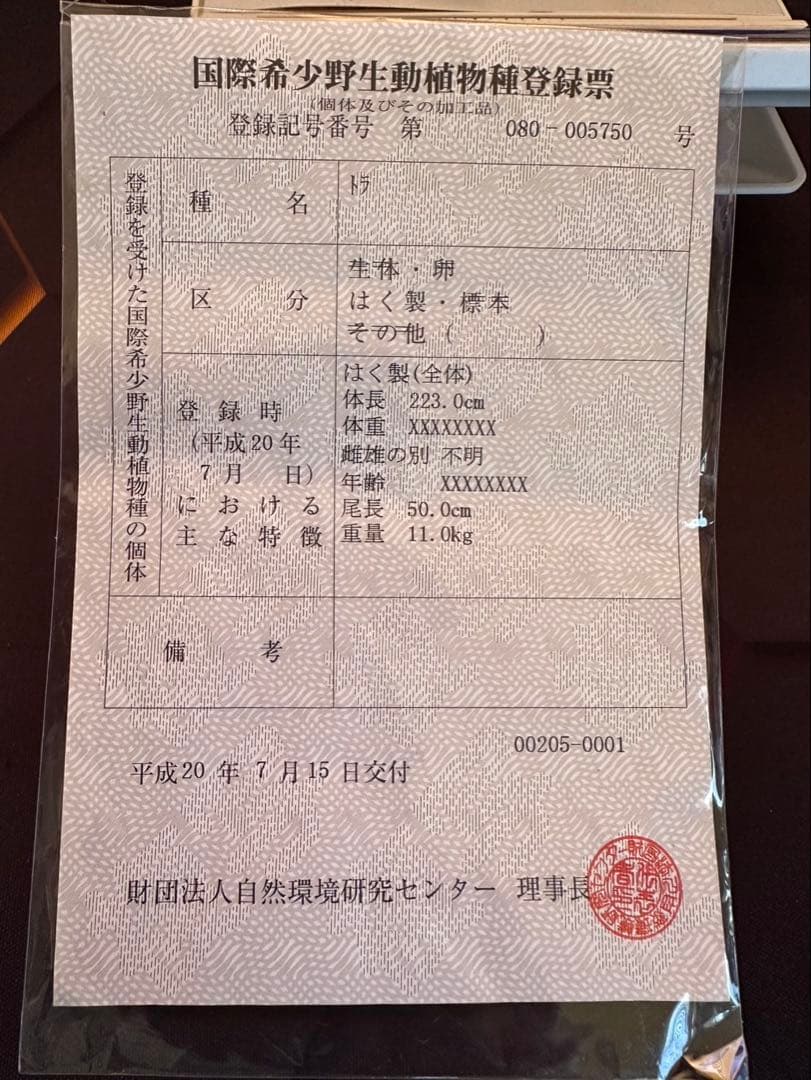 国際希少野生動植物種登録票
(個体及びその加工品)
登録記号番号 第 080-005750 号
登録を受けた国際希少野生動植物種の個体
種 名
ﾄﾗ
区 分
生体・卵
はく製・標本
その他 ( )
登録時
(平成20年
7月 日)
における
主な特徴
はく製(全体)
体長 223.0cm
体重 XXXXXXXX
雌雄の別 不明
年齢 XXXXXXXX
尾長 50.0cm
重量 11.0kg
備 考
00205-0001
平成20年 7月15日交付
財団法人自然環境研究センター 理事長